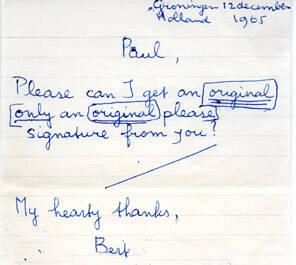 Groningen 12 december
Holland 1965
Paul,
Please can I get an original
only an original please
signature from you?
My hearty thanks,
Bert